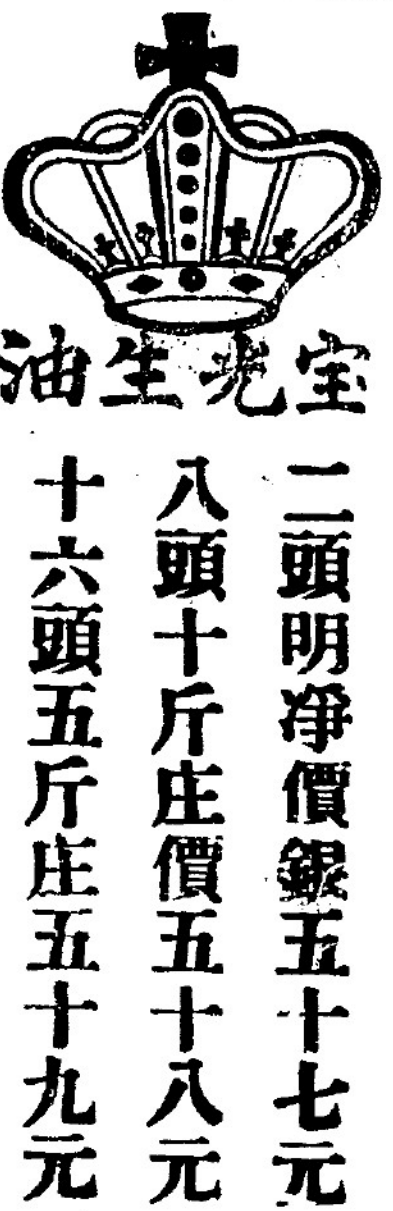 宝光生油
二頭明凈價銀五十七元
八頭十斤庄價五十八元
十六頭五斤庄五十九元